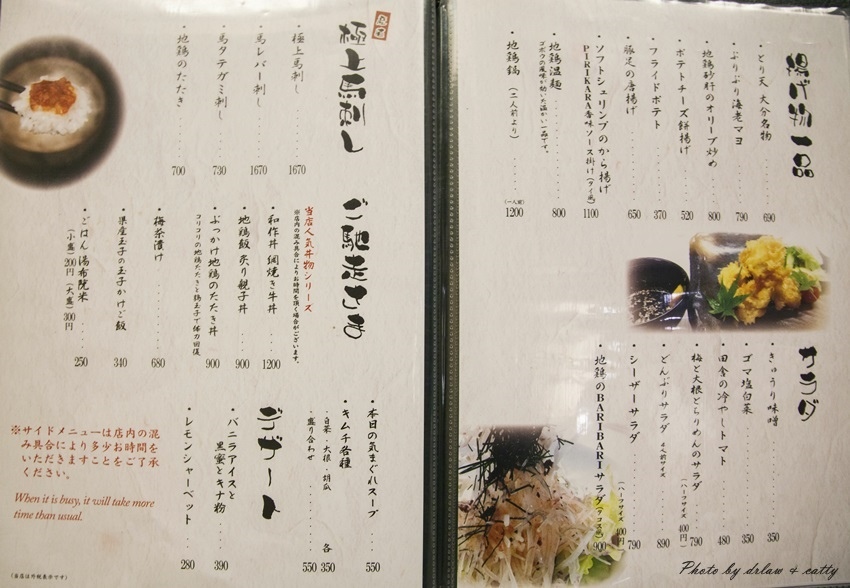 揚げ物一品
・とり天 大分名物 690
・ぷりぷり海老マヨ 790
・地鶏砂肝のオリーブ炒め 800
・ポテトチーズ餅揚げ 520
・フライドポテト 370
・豚足の唐揚げ 650
・ソフトシュリンプのから揚げ
PIRIKARA香味ソース掛け(タイ風) 1100
・地鶏温麺 800
ゴボウの風味が効いた温かい一品です。
・地鶏鍋(二人前より) (一人前) 1200
サラダ
・きゅうり味噌 350
・ゴマ塩白菜 350
・田舎の冷やしトマト 480
・梅と大根とらりめんのサラダ 790
(ハーフサイズ 400円)
・どんぶりサラダ 4人前サイズ 890
・シーザーサラダ 790
(ハーフサイズ 400円)
・地鶏のBARIBARIサラダ(タコス風) 900
極上馬刺し
・極上馬刺し 1670
・馬レバー刺し 1670
・馬タテガミ刺し 730
・地鶏のたたき 700
ご馳走さま
当店人気丼物シリーズ
※店内の混み具合によりお時間を頂く場合がございます。
・和作丼 網焼き牛丼 1200
・地鶏飯 炙り親子丼 900
・ぶっかけ地鶏のたたき丼 900
コリコリの地鶏たたきと鶏玉子で体力回復
・梅茶漬け 680
・県産玉子の玉子かけご飯 340
・ごはん 湯布院米 250
(小盛)200円(大盛)300円
・本日の気まぐれスープ 550
・キムチ各種
・白菜・大根・胡瓜 各350
・盛り合わせ 550
デザート
・バニラアイスと
黒蜜とキナ粉 390
・レモンシャーベット 280
※サイドメニューは店内の混
み具合により多少お時間を
いただきますことをご了承
ください。
When it is busy, it will take more
time than usual.
(当店は外税表示です)
Photo by drlaw & catty